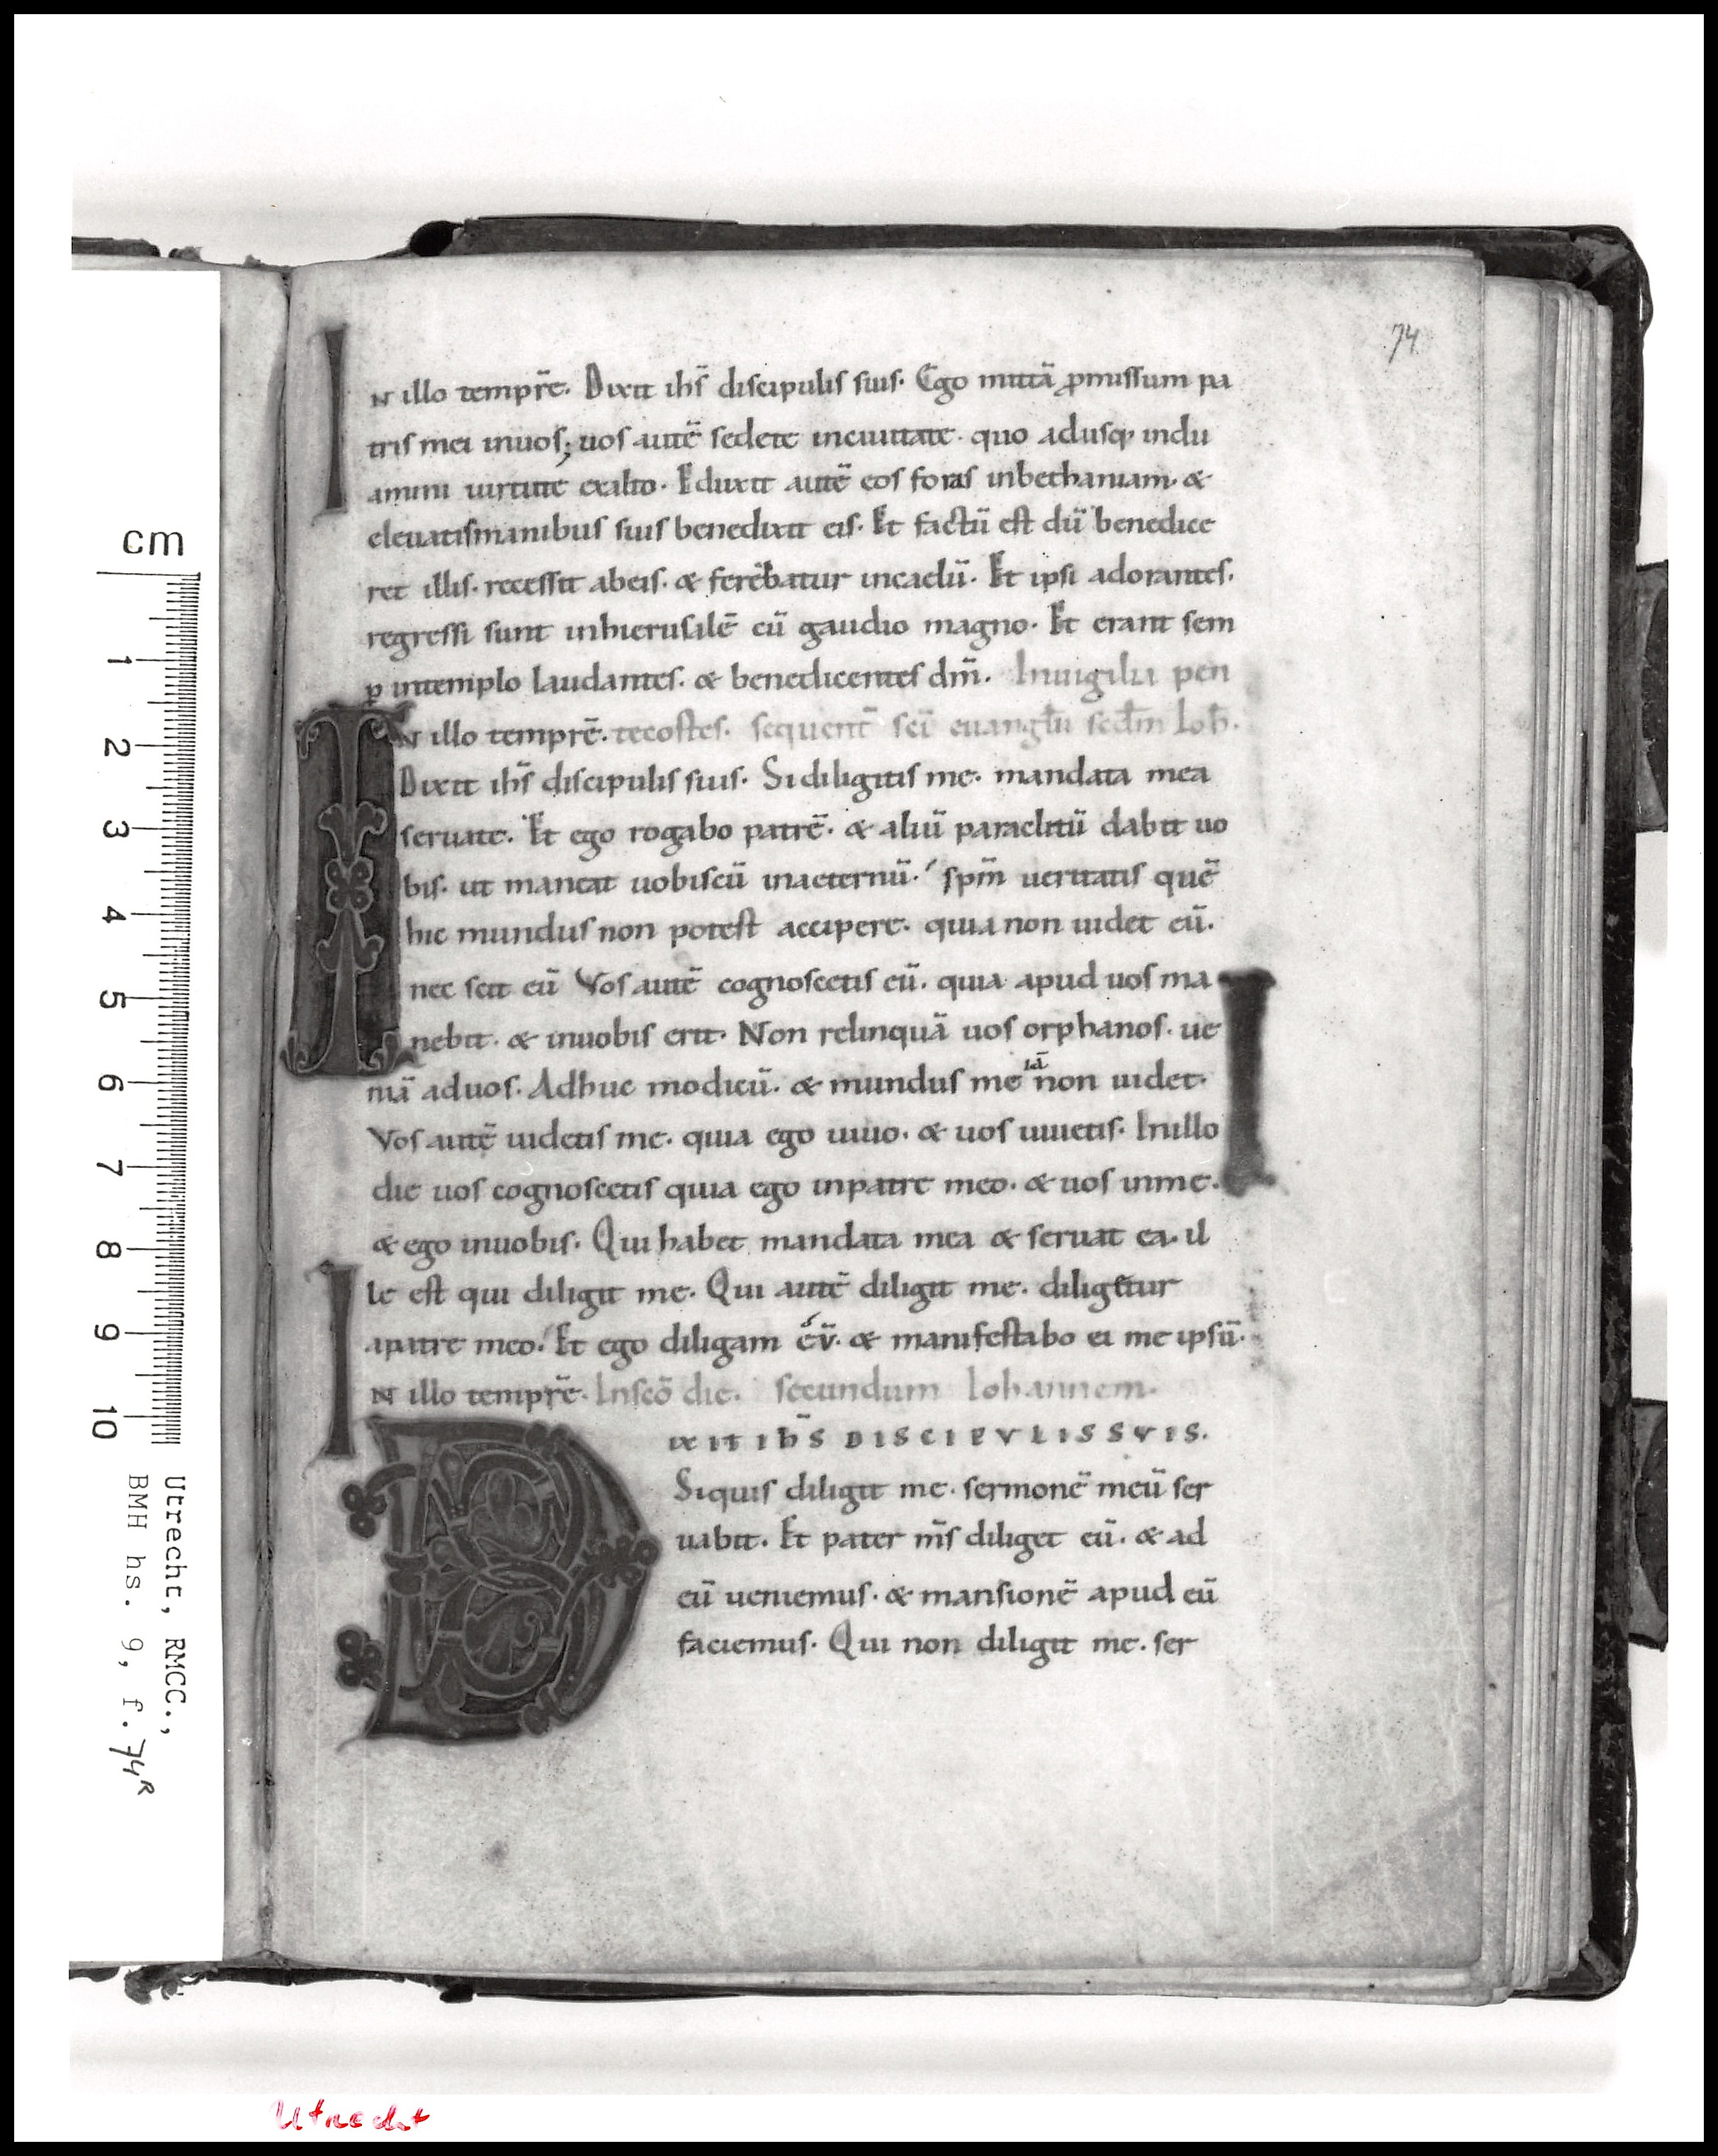 74
IN illo tempr̄e. Dixit ih̄s discipulis suis. Ego mittā ꝓmissum pa
tris mei inuos; uos autē sedete inciuitate. quo adusq; indu
amini uirtutē exalto. Eduxit autē eos foras inbethaniam. &
eleuatismanibus suis benedixit eis. Et factū est dū benedice
ret illis. recessit abeis. & ferebatur incaelū. Et ipsi adorantes.
regressi sunt inhierusalē cū gaudio magno. Et erant sem
ꝑ intemplo laudantes. & benedicentes dm̄. Inuigilia pen
IN illo tempr̄e. tecostes. sequent̄ sc̄i euangl̄ii sec̄dm Ioh̄.
Dixit ih̄s discipulis suis. Sidiligitis me. mandata mea
seruate. Et ego rogabo patrē. & aliū paraclitū dabit uo
bis. ut maneat uobiscū inaeternū. sp̄m ueritatis quē
hic mundus non potest accipere. quia non uidet eū.
nec scit eū Vos autē cognoscetis eū. quia apud uos ma
nebit. & inuobis erit. Non relinquā uos orphanos. ue
niā aduos. Adhuc modicū. & mundus me iā non uidet.
Vos autē uidetis me. quia ego uiuo. & uos uiuetis. Inillo
die uos cognoscetis quia ego inpatre meo. & uos inme.
& ego inuobis. Qui habet mandata mea & seruat ea. il
le est qui diligit me. Qui autē diligit me. diligetur
apatre meo. Et ego diligam eū. & manifestabo ei me ipsū.
IN illo tempr̄e. Insc̄o die. secundum Iohannem.
DIXIT IH̄S DISCIPVLIS SVIS.
Siquis diligit me. sermonē meū ser
uabit. Et pater m̄s diliget eū. & ad
eū ueniemus. & mansionē apud eū
faciemus. Qui non diligit me. ser
cm
1
2
3
4
5
6
7
8
9
10
Utrecht, RMCC.,
BMH hs. 9, f. 74R
Utrecht